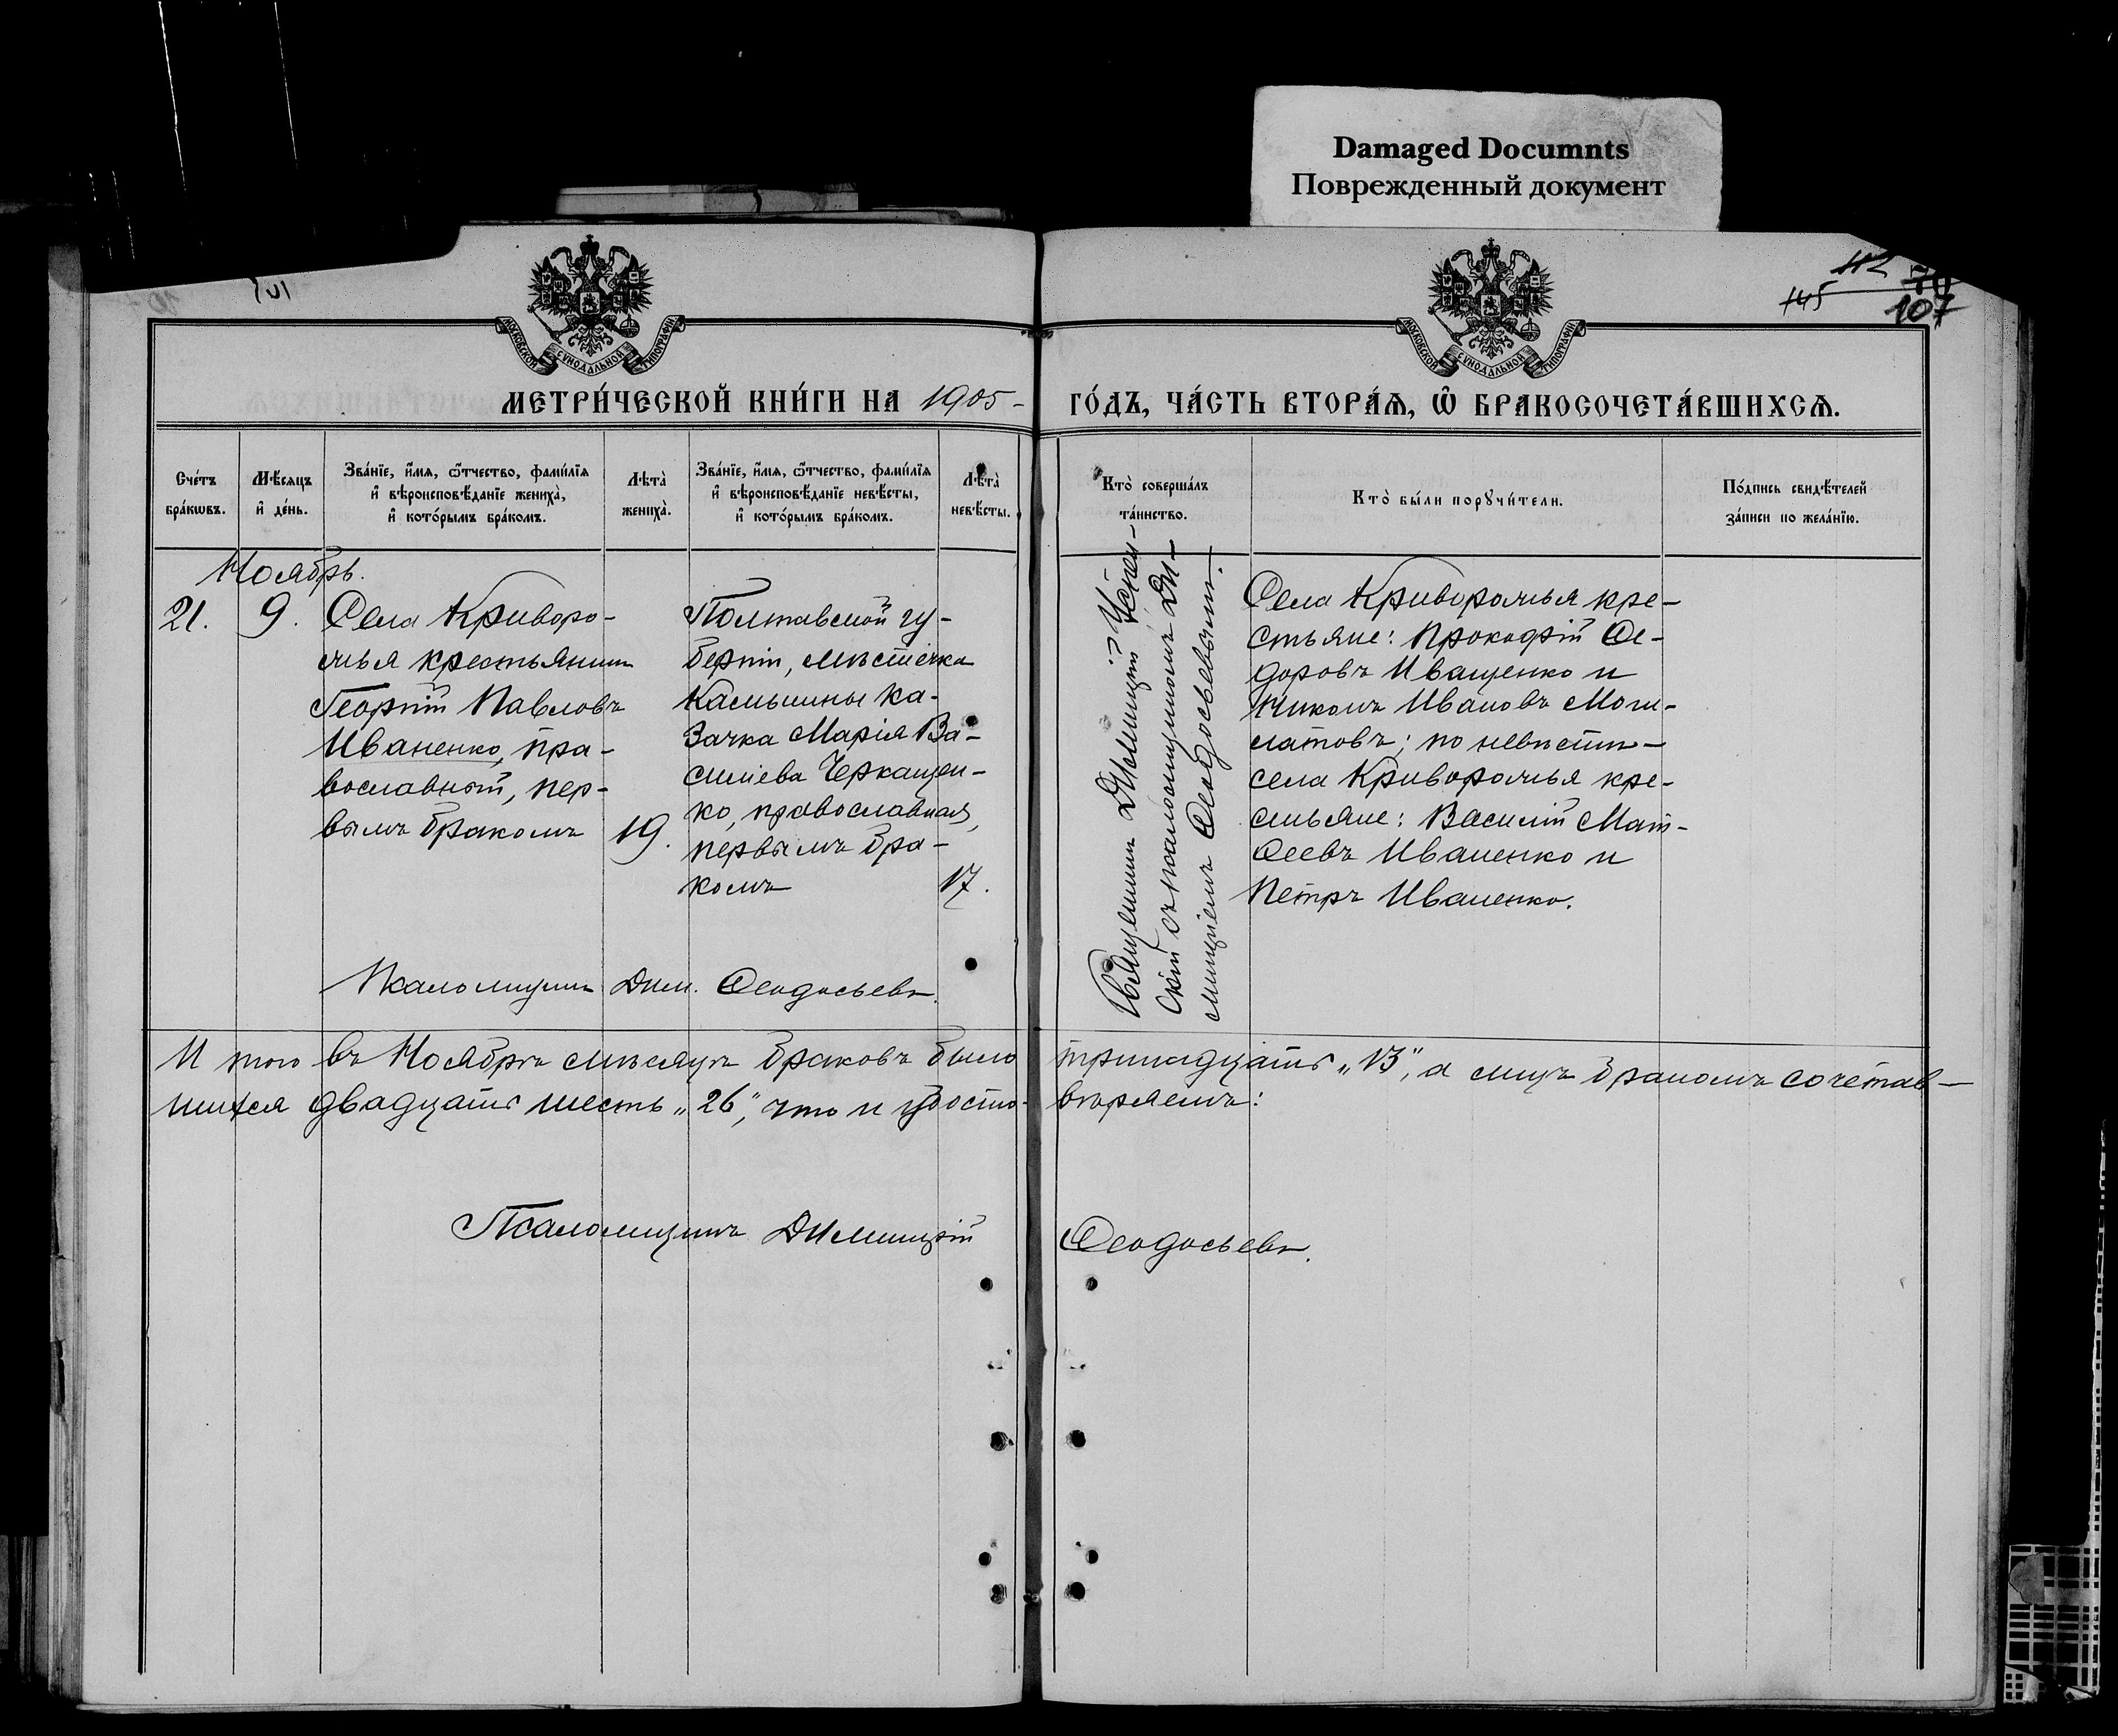 Damaged Documnts
Поврежденный документ
112
145
70
107
МОСКОВСКОЙ СѴНОДАЛЬНОЙ ТИПОГРАФІИ
МОСКОВСКОЙ СѴНОДАЛЬНОЙ ТИПОГРАФІИ
МЕТРИ́ЧЕСКОЙ КНИ́ГИ НА 1905-
ГО́ДЪ, ЧА́СТЬ ВТОРА́Ѧ, Ѡ҆ БРАКОСОЧЕТА́ВШИХСѦ.
Сче́тъ
бра́кѡвъ.
Мѣ́сѧцъ
и҆ де́нь.
Зва́нїе, и҆́мѧ, ѻ҆́тчество, фами́лїѧ
и҆ вѣроисповѣ́данїе жениха̀,
и҆ кото́рымъ бра́комъ.
Лѣ́та̀
жениха̀.
Зва́нїе, и҆́мѧ, ѻ҆́тчество, фами́лїѧ
и҆ вѣроисповѣ́данїе невѣ́сты,
и҆ кото́рымъ бра́комъ.
Лѣ́та̀
невѣ́сты.
Кто̀ соверша́лъ
та́инство.
Кто̀ бы́ли порꙋчи́тели.
По́дпись свидѣ́телей
за́писи по жела́нїю.
Ноябрь.
21.
9.
Села Криворо-
жья крестьянинъ
Георгій Павловъ
Иваненко, пра-
вославный, пер-
вымъ бракомъ
19.
Полтавской гу-
берніи, мѣстечка
Камышны ка-
зачка Марія Ва-
силіева Черкащен-
ко, православная,
первымъ бра-
комъ
17.
Священникъ Димитрій Успен-
скій съ псаломщикомъ Ди-
митріемъ Ѳеодосьевымъ.
Села Криворожья кре-
стьяне: Прокофій Ѳе-
доровъ Иващенко и
Никонъ Ивановъ Моги-
латовъ; по невѣстѣ-
села Криворожья кре-
стьяне: Василій Мат-
ѳеевъ Иваненко и
Петръ Иваненко.
Псаломщикъ Дим. Ѳеодосьевъ.
Итого въ Ноябрѣ мѣсяцѣ браковъ было тринадцать „13“, а лицъ бракомъ сочетав-
шихся двадцать шесть „26“, что и удосто- вѣряемъ:
Псаломщикъ Димитрій Ѳеодосьевъ.